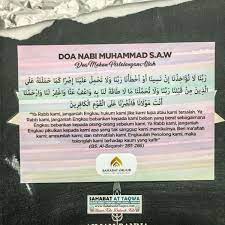 DOA NABI MUHAMMAD S.A.W
Doa Mohon Pertolongan Allah
رَبَّنَا لَا تُؤَاخِذْنَا إِنْ نَسِينَا أَوْ أَخْطَأْنَا رَبَّنَا وَلَا تَحْمِلْ عَلَيْنَا إِصْرًا كَمَا حَمَلْتَهُ عَلَى
الَّذِينَ مِنْ قَبْلِنَا رَبَّنَا وَلَا تُحَمِّلْنَا مَا لَا طَاقَةَ لَنَا بِهِ وَاعْفُ عَنَّا وَاغْفِرْ لَنَا وَارْحَمْنَا
أَنْتَ مَوْلَانَا فَانْصُرْنَا عَلَى الْقَوْمِ الْكَافِرِينَ
"Ya Rabb kami, janganlah Engkau hukum kami jika kami lupa atau kami tersalah. Ya
Rabb kami, janganlah Engkau bebankan kepada kami beban yang berat sebagaimana
Engkau bebankan kepada orang-orang sebelum kami. Ya Rabb kami, janganlah
Engkau pikulkan kepada kami apa yang tak sanggup kami memikulnya. Beri maaflah
kami; ampunilah kami; dan rahmatilah kami. Engkaulah Penolong kami, maka
tolonglah kami terhadap kaum yang kafir."
(QS. Al-Baqarah: 285-286)
SAHABAT AT TAQWA